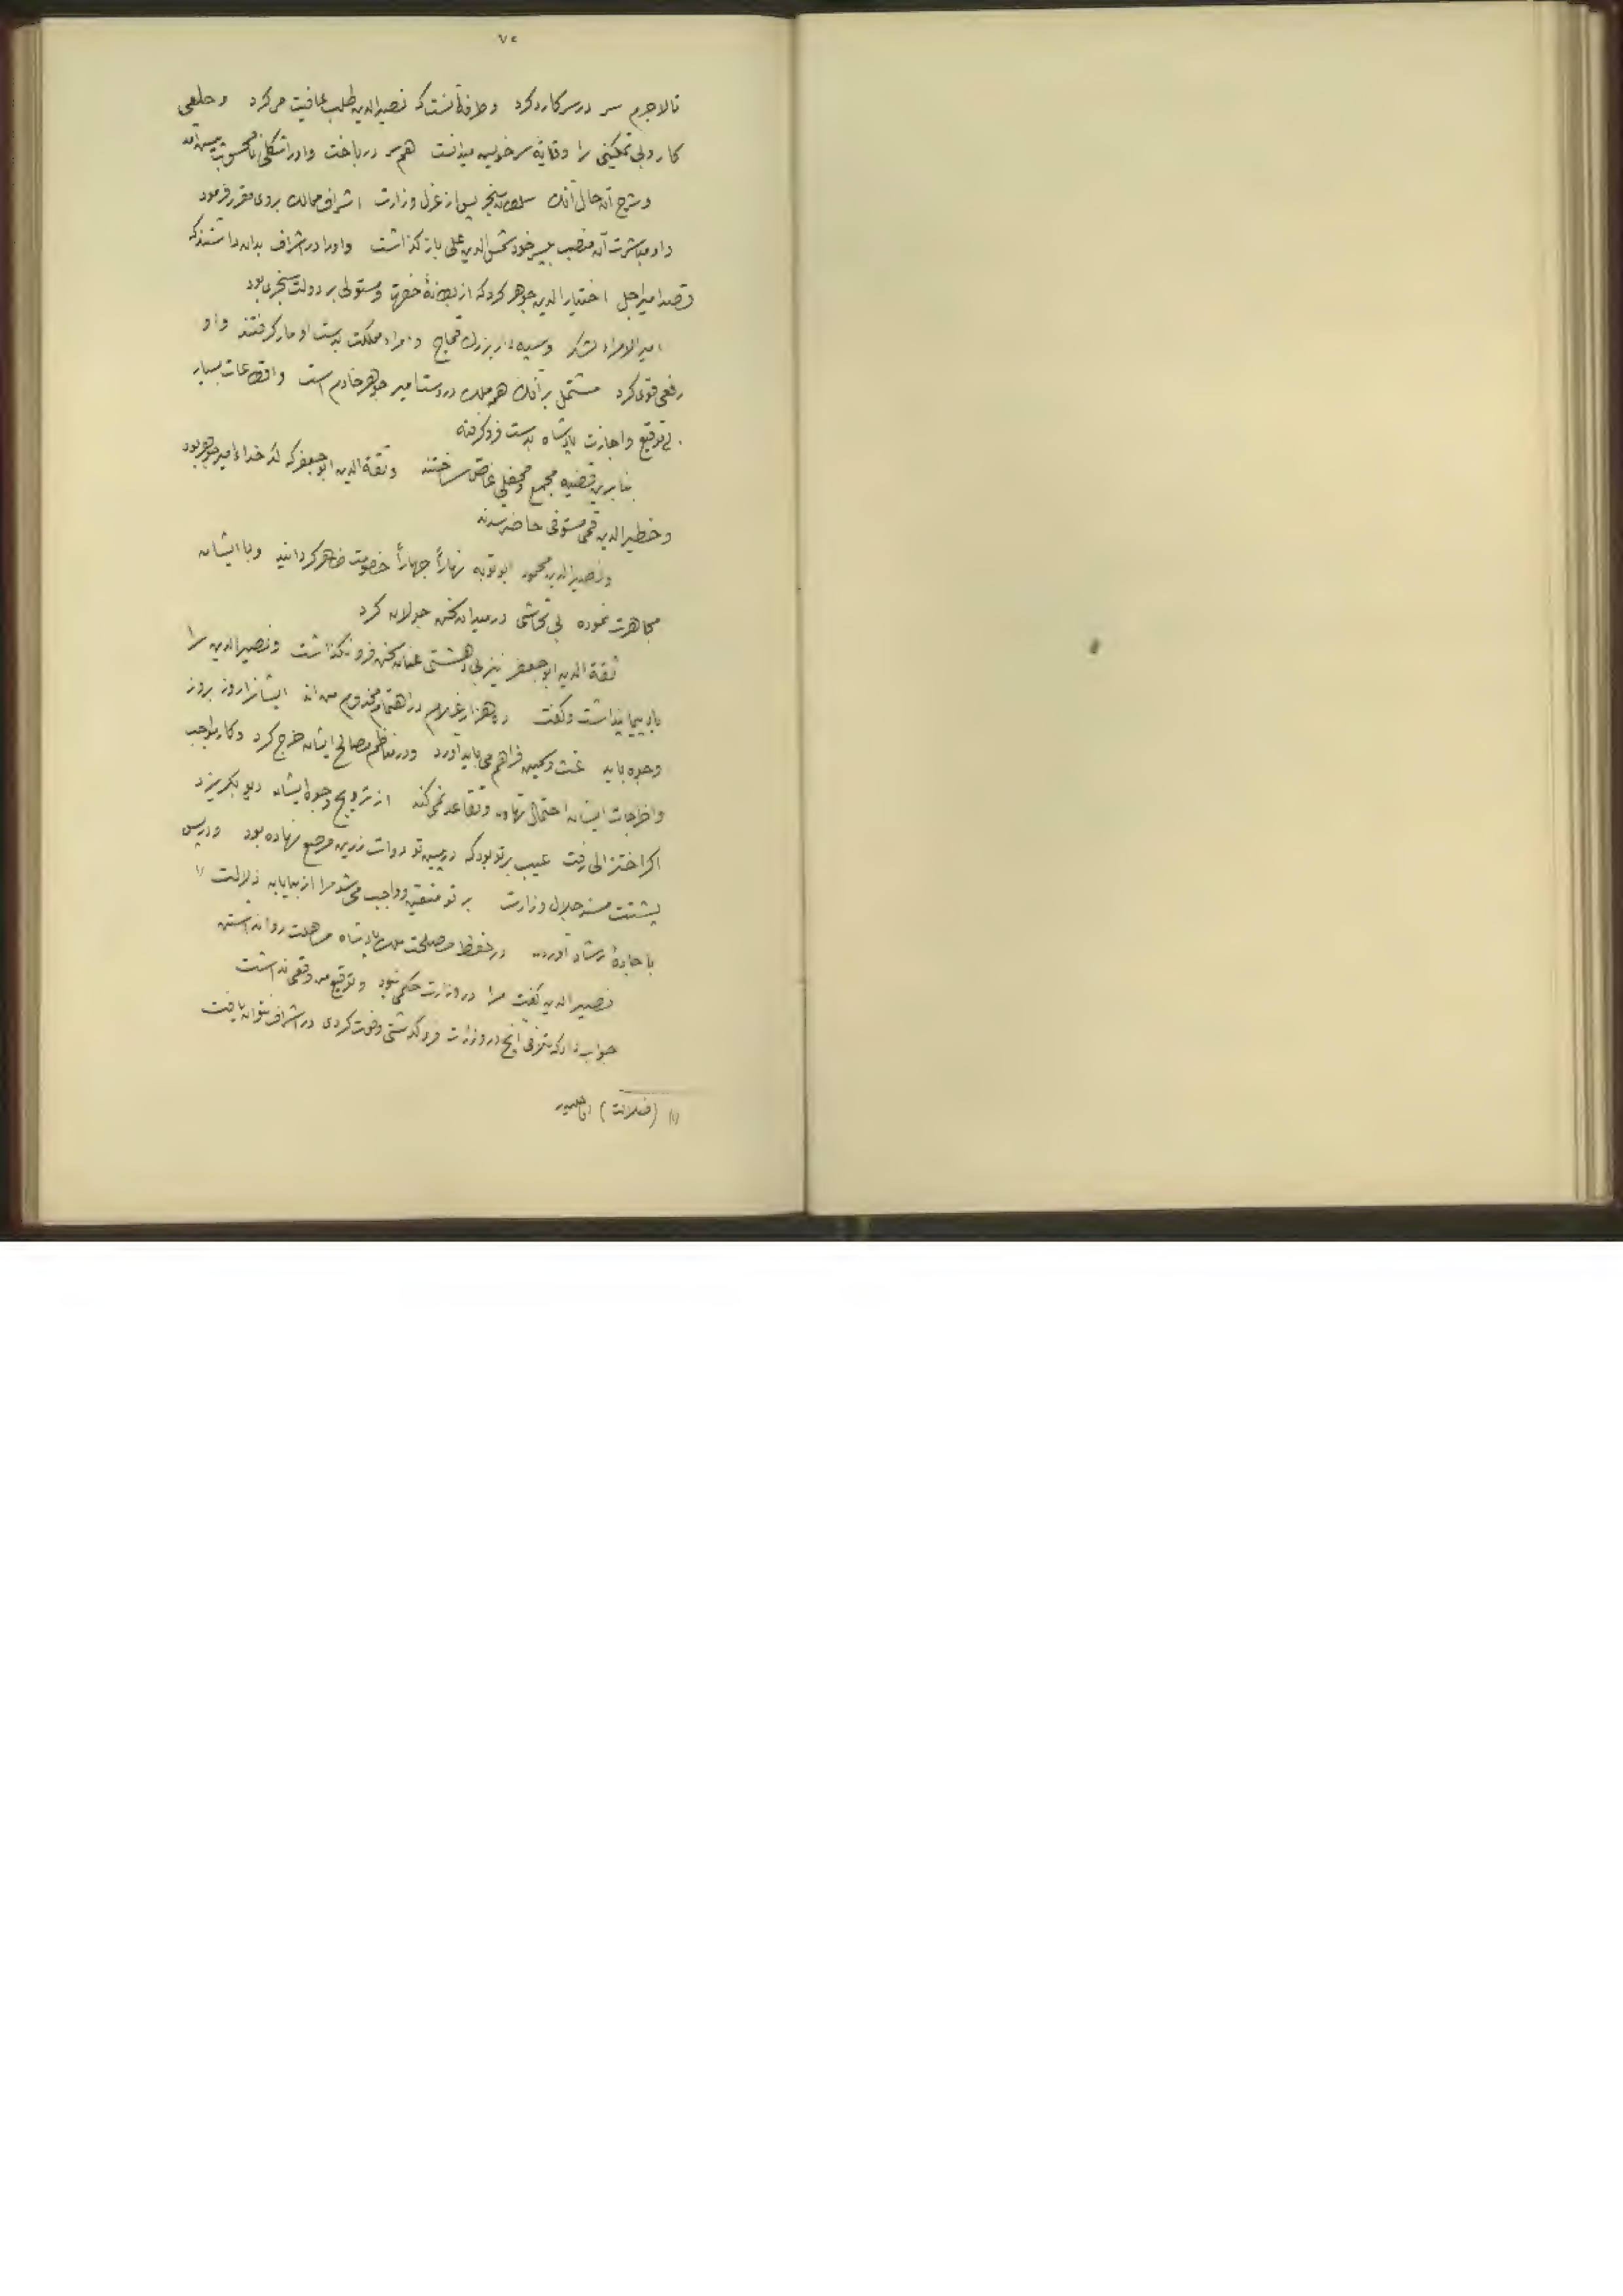 ٧٥
تا لاجرم سر در سر کار کرد و طرفه آنست که نصیرالدین طلب عافیت می‌کرد و خلعی
کار و بی تمکینی را وقایهٔ سر خویش میدانست هم سر در باخت و او را شکلی نا محسوب پیش آمد
و شرح آن حال آنک سلطان سنجر پس از عزل وزارت اشراف ممالک بر وی مقرر فرمود
و او مباشرت آن منصب بپسر خود شمس الدین علی باز گذاشت و او را در اشراف بدان داشتند که
قصد امیر اجل اختیار الدین جوهر کرد که از بطانهٔ حضرت و مستولی بر دولت سنجری بود
امیر الامراء لشکر و سپه دار بزرگ و امراء مملکت بدست او مار گرفتند و او
رفعی قوی کرد مشتمل بر آنک همه ملک در دست امیر جوهر خادم است و اقطاعات بسیار
بی توقیع و اجازت پادشاه بدست فرو گرفته
بنا برین قضیه مجمع و محفلی غاص ساختند و ثقة الدین ابو جعفر که کدخداء امیر جوهر بود
و خطیر الدین قمی مستوفی حاضر شدند
و نصیر الدین محمود ابو توبه نهاراً جهاراً خصومت ظاهر گردانید و با ایشان
مجاهرت نموده بی تحاشی در میدان سخن جولان کرد
ثقة الدین ابو جعفر نیز بی دهشتی عنان سخن فرو نگذاشت و نصیرالدین را
باد پیما پنداشت و گفت دو هزار غلام در اهتمام مخدوم من اند ایشانرا روز بروز
وجوه باید غث و سمین فراهم می باید آورد و در تناظم مصالح ایشان خرج کرد و کار مواجب
و اخراجات ایشان احتمال تهاون و تقاعد نمی کند از ترویج وجوه ایشان دیو بگریزد
اگر اختزالی رفت عیب بر تو بود که در پیش تو دوات زرین مرصع نهاده بود و در پس
پشتت مسند جلال وزارت بر تو متعین و واجب می شد مرا از بیابان زلالت (١)
با جادهٔ رشاد آوردن در حفظ مصلحت ملک پادشاه مداهنت روا نداشتن
نصیر الدین گفت مرا در وزارت حکمی نبود و توقیع من وقعی نداشت
جواب داد که تلافی آنچ در وزارت فرو گذشتی و فوت کردی در اشراف نتوان یافت
(١) (ضلالت)